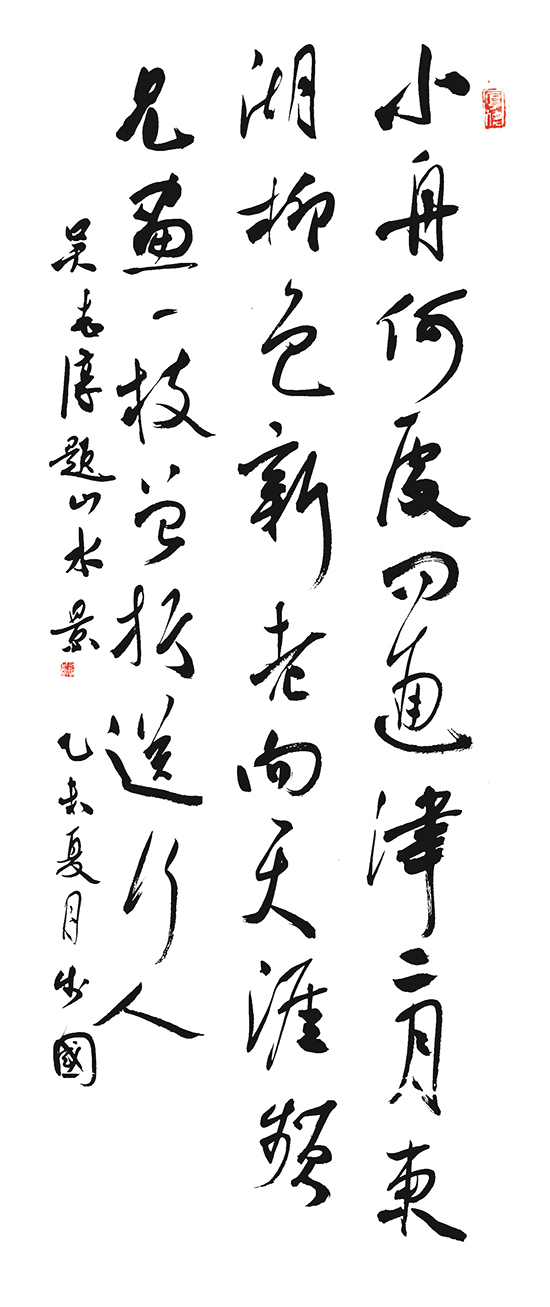 小舟何處问通津二月東
湖柳色新老向天涯頻
見畫一枝曾折送行人
吴志淳題山水景 乙未夏月 國